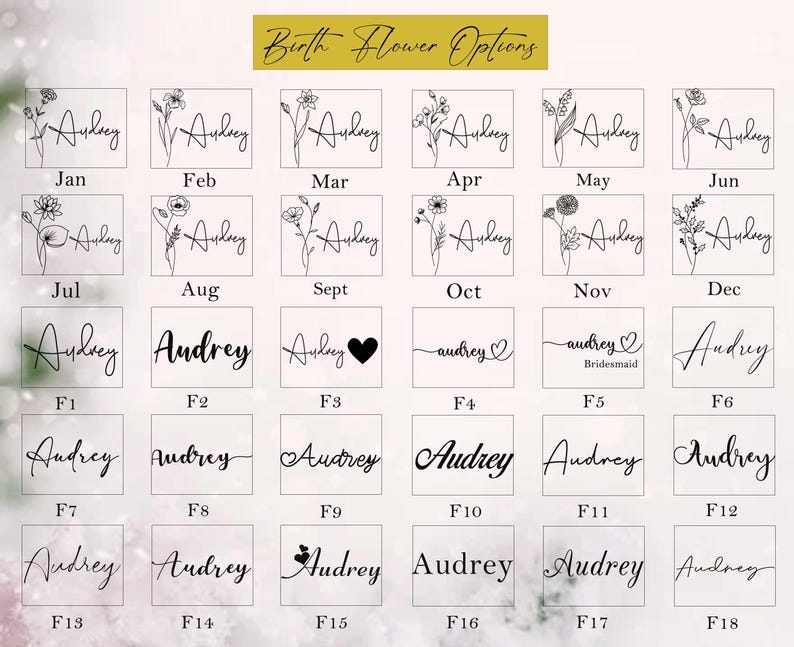 Birth Flower Options
Audrey Audrey Audrey Audrey Audrey Audrey
Jan Feb Mar Apr May Jun
Audrey Audrey Audrey Audrey Audrey Audrey
Jul Aug Sept Oct Nov Dec
Audrey Audrey Audrey audrey audrey Audrey
Bridesmaid
F1 F2 F3 F4 F5 F6
Audrey Audrey Audrey Audrey Audrey Audrey
F7 F8 F9 F10 F11 F12
Audrey Audrey Audrey Audrey Audrey Audrey
F13 F14 F15 F16 F17 F18